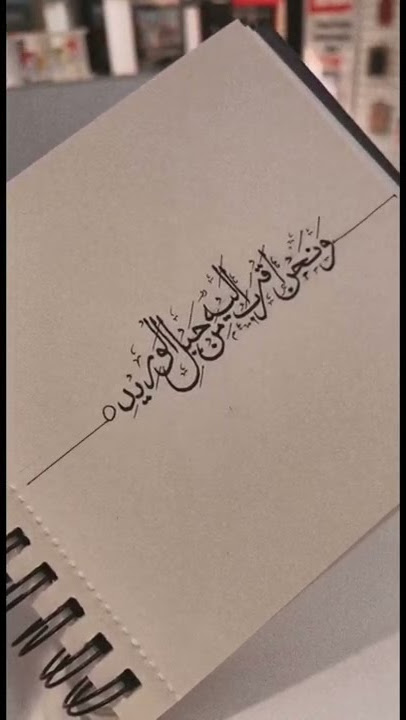 ونحن أقرب إليه من حبل الوريد